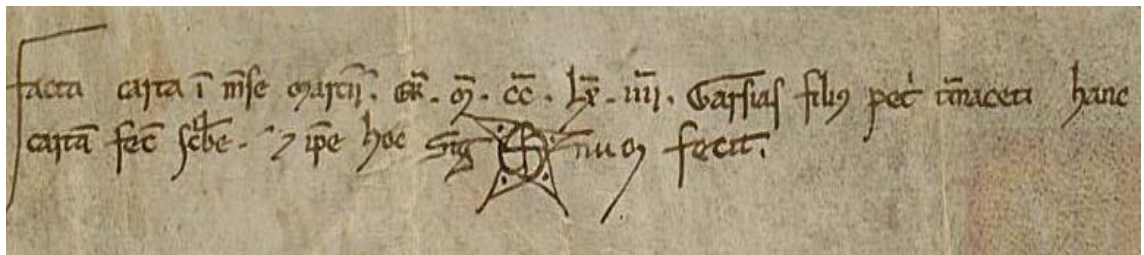 Facta carta ī m̄se marcii. Er̄. M̄. c̄c̄. lx̄. iiii. Garsias filiꝰ pet̓ hanc
cartā fec̄ sc̓be. ⁊ ip̄e hoc sig nūm fecit.